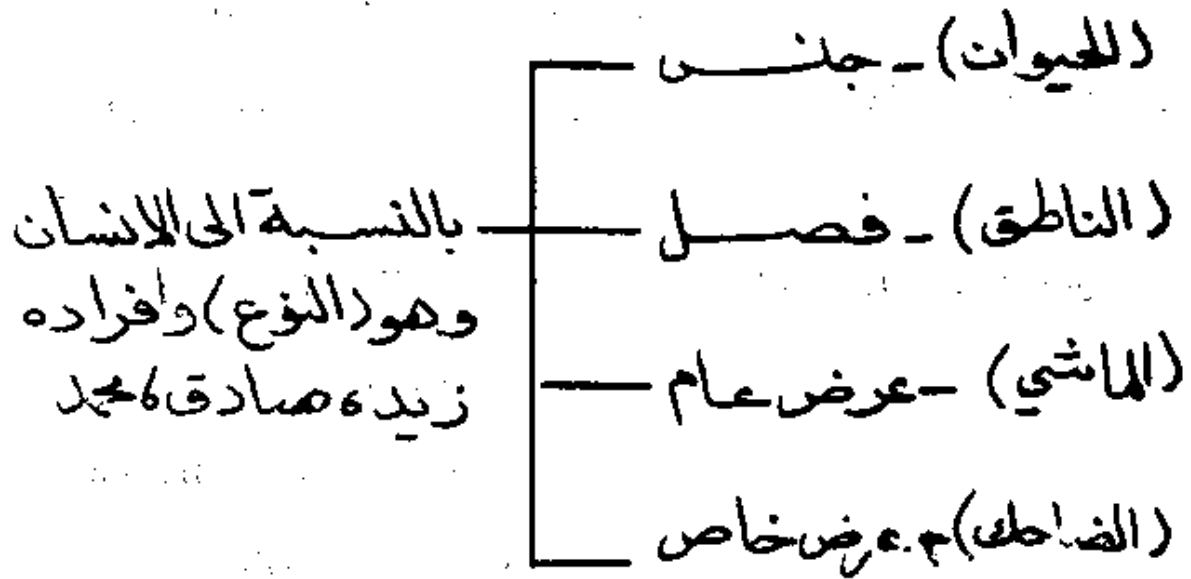 (الحيوان) - جنس
(الناطق) - فصل
(الماشي) - عرض عام
(الضاحك) م. عرض خاص
بالنسبة الى الانسان
وهو (النوع) وافراده
زيد، صادق، محمد